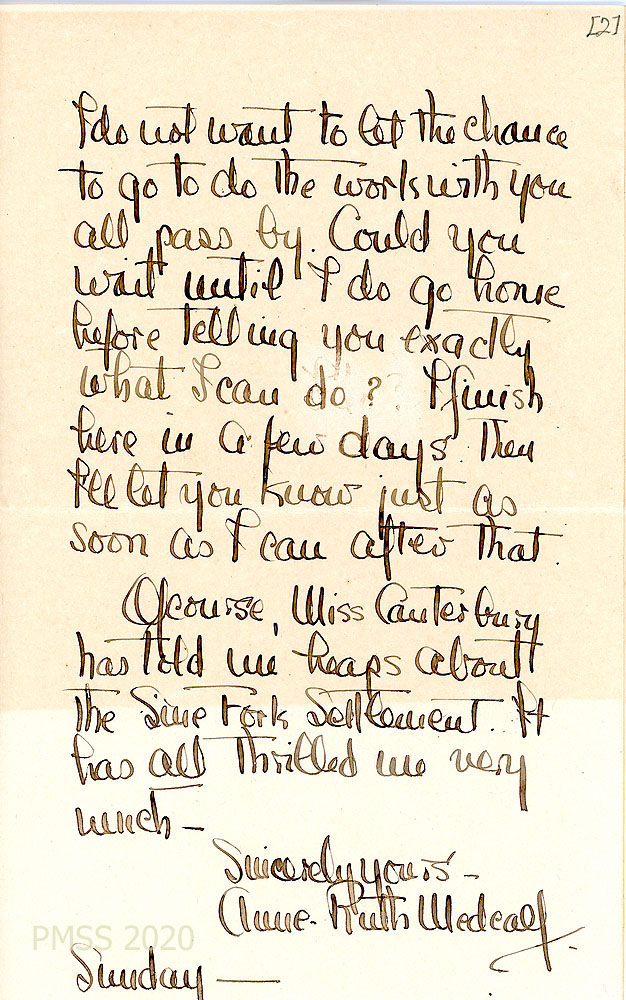 [2]
I do not want to let the chance
to go to do the work with you
all pass by. Could you
wait until I do go home
before telling you exactly
what I can do? I finish
here in a few days. Then
I'll let you know just as
soon as I can after that.
Of course, Miss Canterbury
has told me heaps about
the Line Fork Settlement. It
has all thrilled me very
much –
Sincerely yours –
Anne-Ruth Medcalf.
PMSS 2020
Sunday —